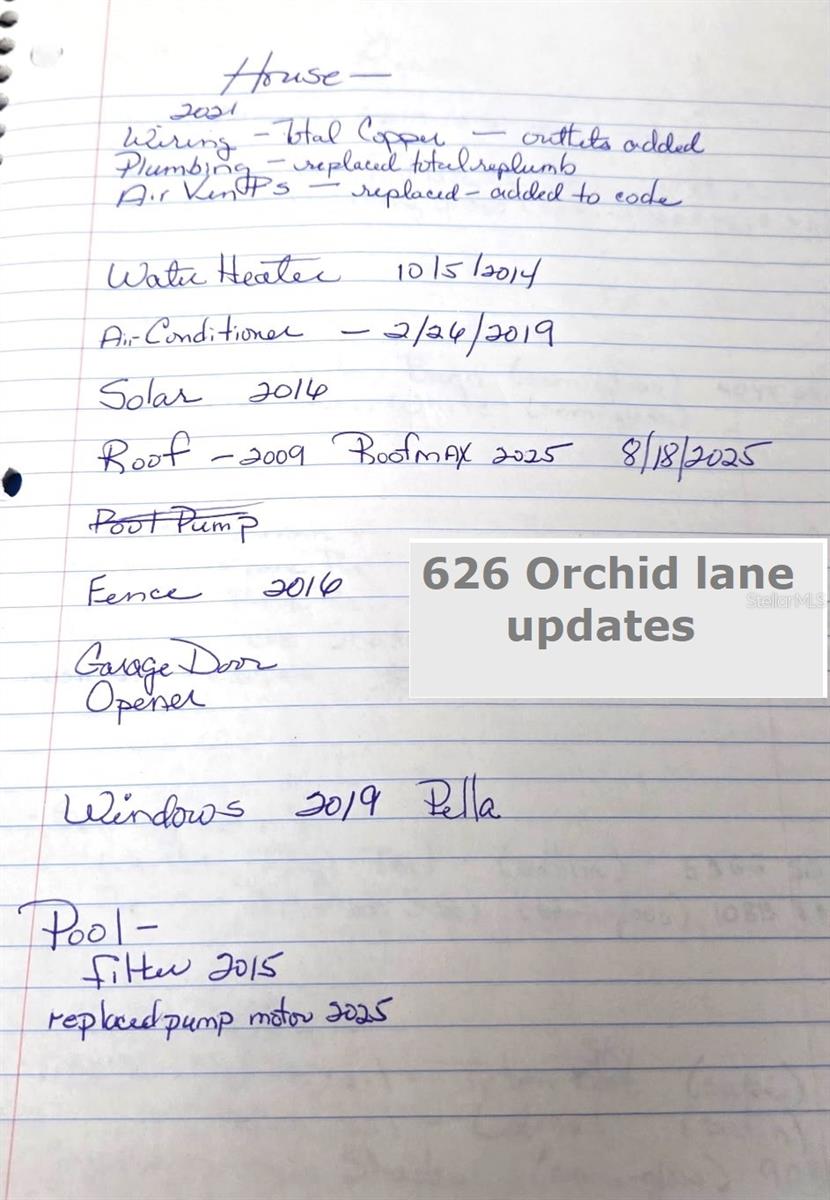 House —
2021
Wiring - Total Copper — outlets added
Plumbing - replaced total replumb
Air Vents — replaced - added to code
Water Heater 10/5/2014
Air-Conditioner - 2/26/2019
Solar 2016
Roof - 2009 RoofMAX 2025 8/18/2025
Pool Pump
Fence 2016
626 Orchid lane
StellarMLS
updates
Garage Door
Opener
Windows 2019 Pella
Pool -
filter 2015
replaced pump motor 2025